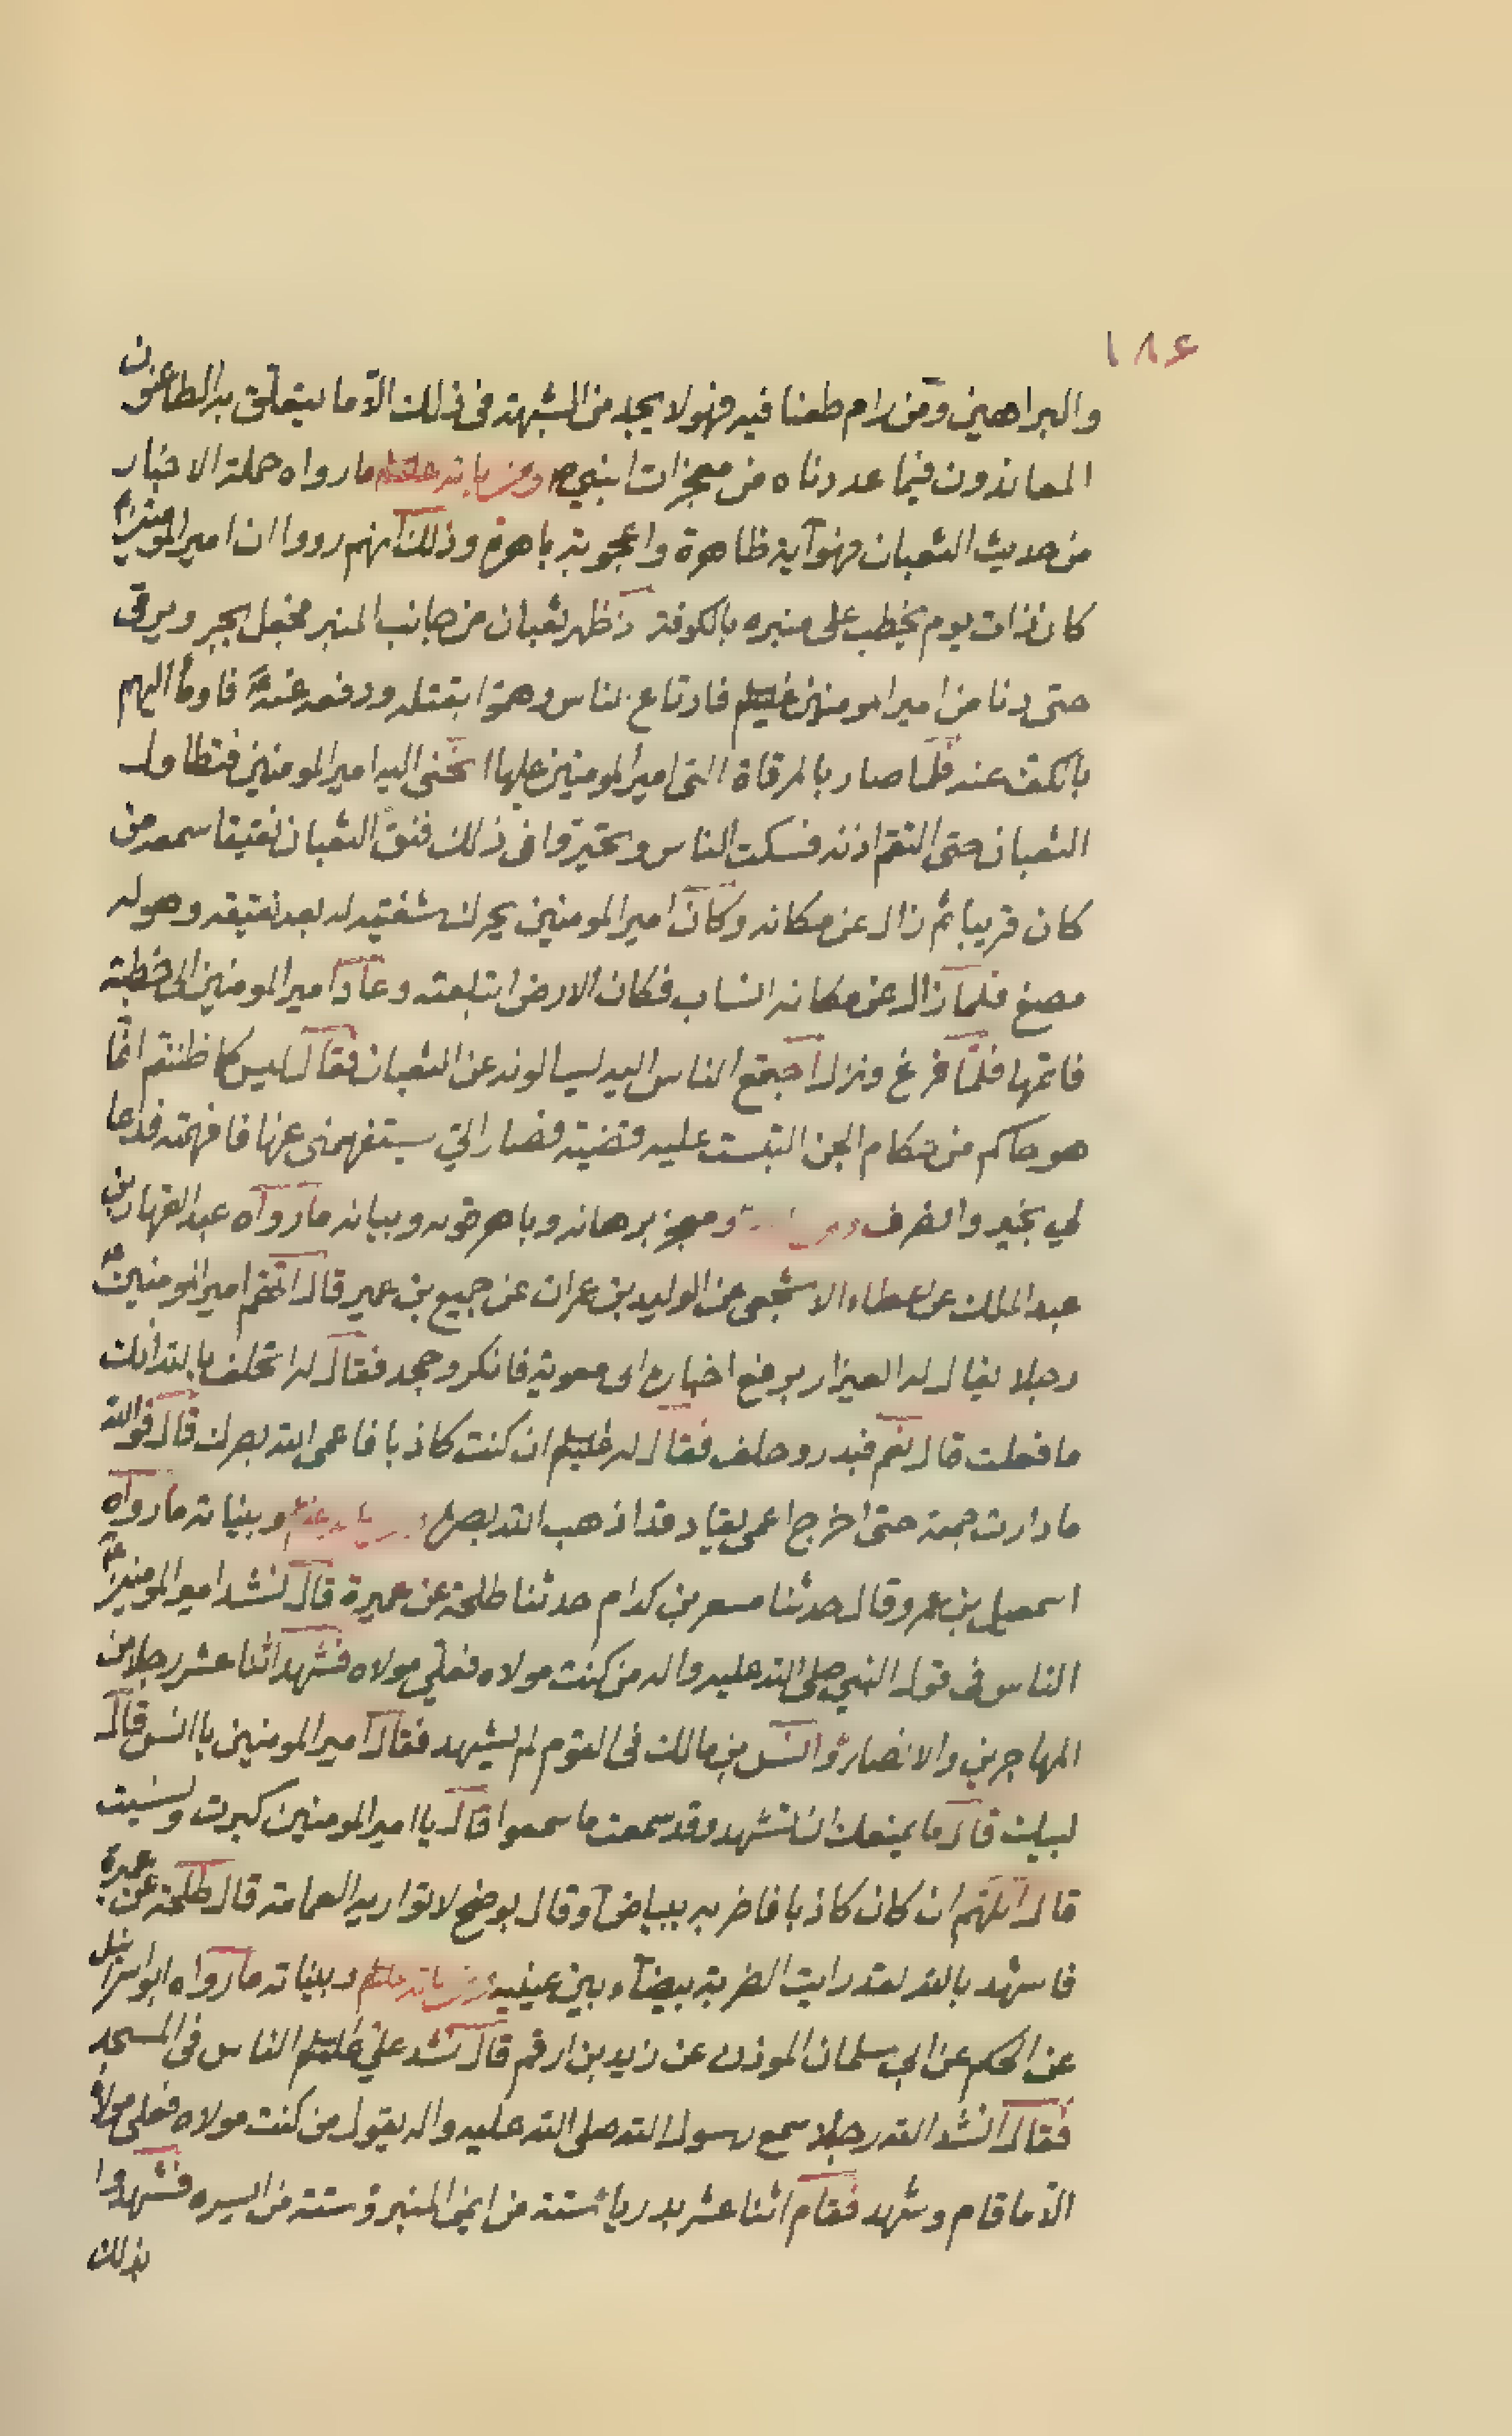 ١٨٤
والبراهين ومن رام طعنا فيه فهو لا يجد من الشبهة في ذلك الا ما يتعلق به الطاعنون
المعاندون فيما عددناه من معجزات النبي ص ومن اياته عليه السلم ما رواه حملة الاخبار
من حديث الثعبان وهو آية ظاهرة واعجوبة باهرة وذلك انهم رووا ان امير المومنين ع
كان ذات يوم يخطب على منبره بالكوفة اذ ظهر ثعبان من جانب المنبر فجعل يجر ويرقى
حتى دنا من امير المومنين عليه السلم فارتاع الناس وهموا بقتله ودفعه عنه فاومأ اليهم
بالكف عنه فلما صار بالمرقاة التي امير المومنين عليها انحنى اليه امير المومنين فتطاول
الثعبان حتى التقم اذنه فسكت الناس وتحيروا في ذلك فنق الثعبان نقيقا سمعه من
كان قريبا ثم زال عن مكانه وكان امير المومنين يحرك شفتيه له بعد نقيقه وهو له
مصغ فلما زال عن مكانه انساب فكان الارض ابتلعته وعاد امير المومنين الى خطبته
فاتمها فلما فرغ ونزل اجتمع الناس اليه ليسالونه عن الثعبان فقال ليس كما ظننتم انما
هو حاكم من حكام الجن التبست عليه قضية فصار الي يستفهمني عنها فافهمته فدعا
لي بخير وانصرف ومعجز برهانه وباهر قوله وبيانه ما رواه عبد القهار بن
عبد الملك عن عطاء الاشجعي عن الوليد بن عمران عن جميع بن عمير قال اتهم امير المومنين ع
رجلا يقال له العيزار يرفع اخباره الى معوية فانكر وجحد فقال له اتحلف بالله انك
ما فعلت قال نعم فبدر وحلف فقال له عليه السلم ان كنت كاذبا فاعمى الله بصرك قال فوالله
ما دارت جمعة حتى اخرج اعمى يقاد قد اذهب الله بصره وبيناته ما رواه
اسمعيل بن عمرو قال حدثنا مسعر بن كدام حدثنا طلحة عن عميرة قال نشد امير المومنين ع
الناس في قول النبي صلى الله عليه واله من كنت مولاه فعلي مولاه فشهد اثنا عشر رجلا من
المهاجرين والانصار وانس بن مالك في القوم لم يشهد فقال امير المومنين يا انس قال
لبيك قال ما يمنعك ان تشهد وقد سمعت ما سمعوا قال يا امير المومنين كبرت ونسيت
قال اللهم ان كان كاذبا فاضربه ببياض او قال بوضح لا تواريه العمامة قال طلحة عن عميرة
فاشهد بالله لقد رايت الضربة بيضاء بين عينيه ومن اياته عليه السلم وبيناته ما رواه ابو اسرائيل
عن الحكم عن ابي سلمان الموذن عن زيد بن ارقم قال نشد علي عليه السلم الناس في المسجد
فقال انشد الله رجلا سمع رسول الله صلى الله عليه واله يقول من كنت مولاه فعلي مولاه
الا ما قام وشهد فقام اثنا عشر بدريا ستة من ايمن المنبر وستة من ايسره فشهدوا
بذلك